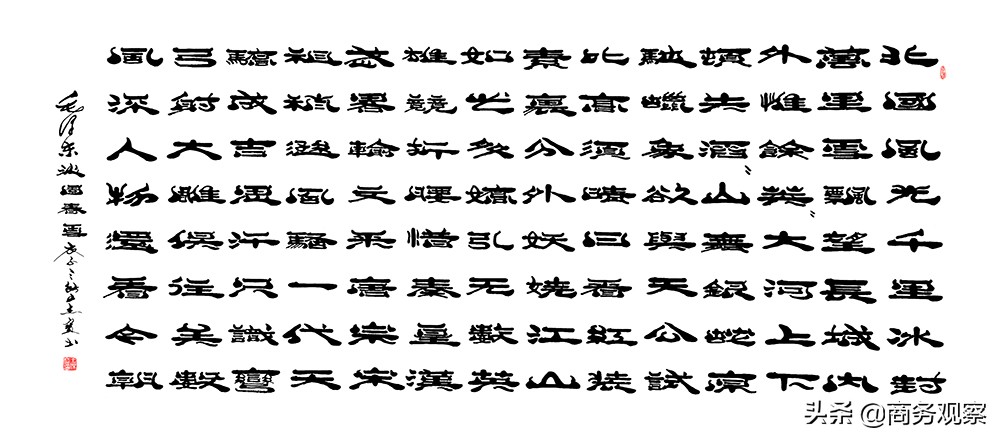 北國風光千里冰封
萬里雪飄望長城內
外惟餘莽〃大河上下
頓失滔〃山舞銀蛇原
馳蠟象欲與天公試
比高須晴日看紅裝
素裹分外妖嬈江山
如此多嬌引无數英
雄競折腰惜秦皇漢
武略輸文采唐宗宋
祖稍遜風騷一代天
驕成吉思汗只識彎
弓射大雕俱往矣數
風流人物還看今朝
毛澤東沁園春雪
头条 @商务观察